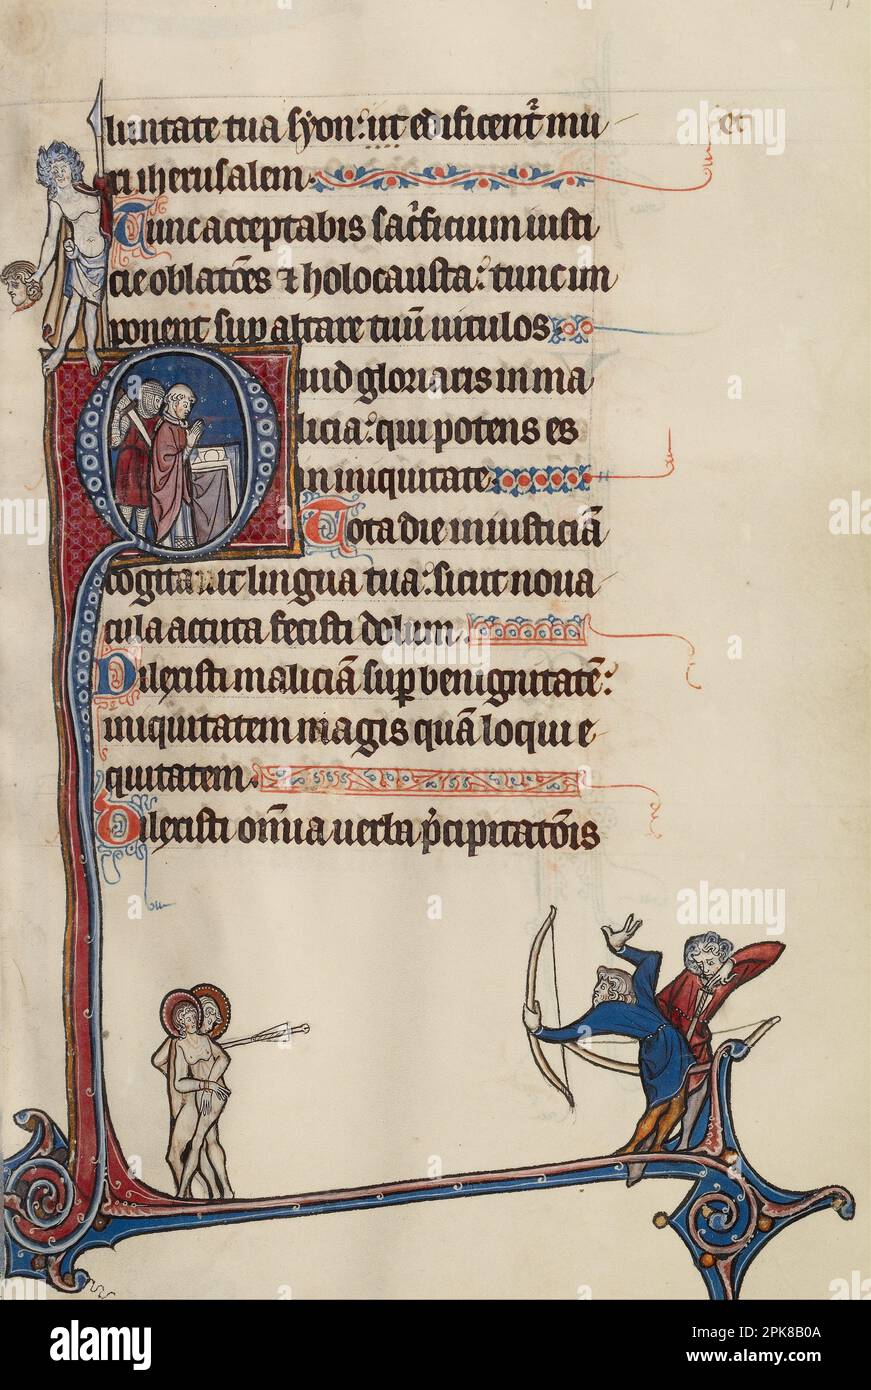 luntate tua syon: ut edificent mu et
ri iherusalem.
Tunc acceptabis sacrificium iusti
cie oblatões & holocausta: tunc im
ponent sup altare tuũ uitulos
Quid gloriaris in ma
licia: qui potens es
in iniquitate
Tota die iniusticiã
cogitauit lingua tua: sicut noua
cula accuta fecisti dolum.
Dilexisti maliciãm sup benignitatẽ:
iniquitatem magis quãm loqui e-
quitatem.
Dilexisti omĩa uerba p̃cipitatõis
alamy
alamy
Image ID: 2PK8B0A
www.alamy.com